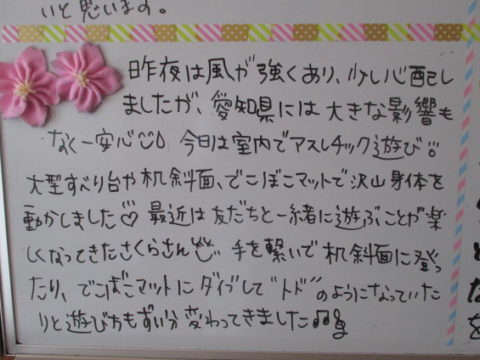 いと思います。
昨夜は風が強くあり、少し心配し
ましたが、愛知県には大きな影響も
なく一安心 今日は室内でアスレチック遊び
大型すべり台や机斜面、でこぼこマットで沢山身体を
動かしました♡ 最近は友だちと一緒に遊ぶことが楽
しくなってきたさくらさん 手を繋いで机斜面に登っ
たり、でこぼこマットにダイブして“トド”のようになっていた
りと遊び方もずい分変わってきました♪♬